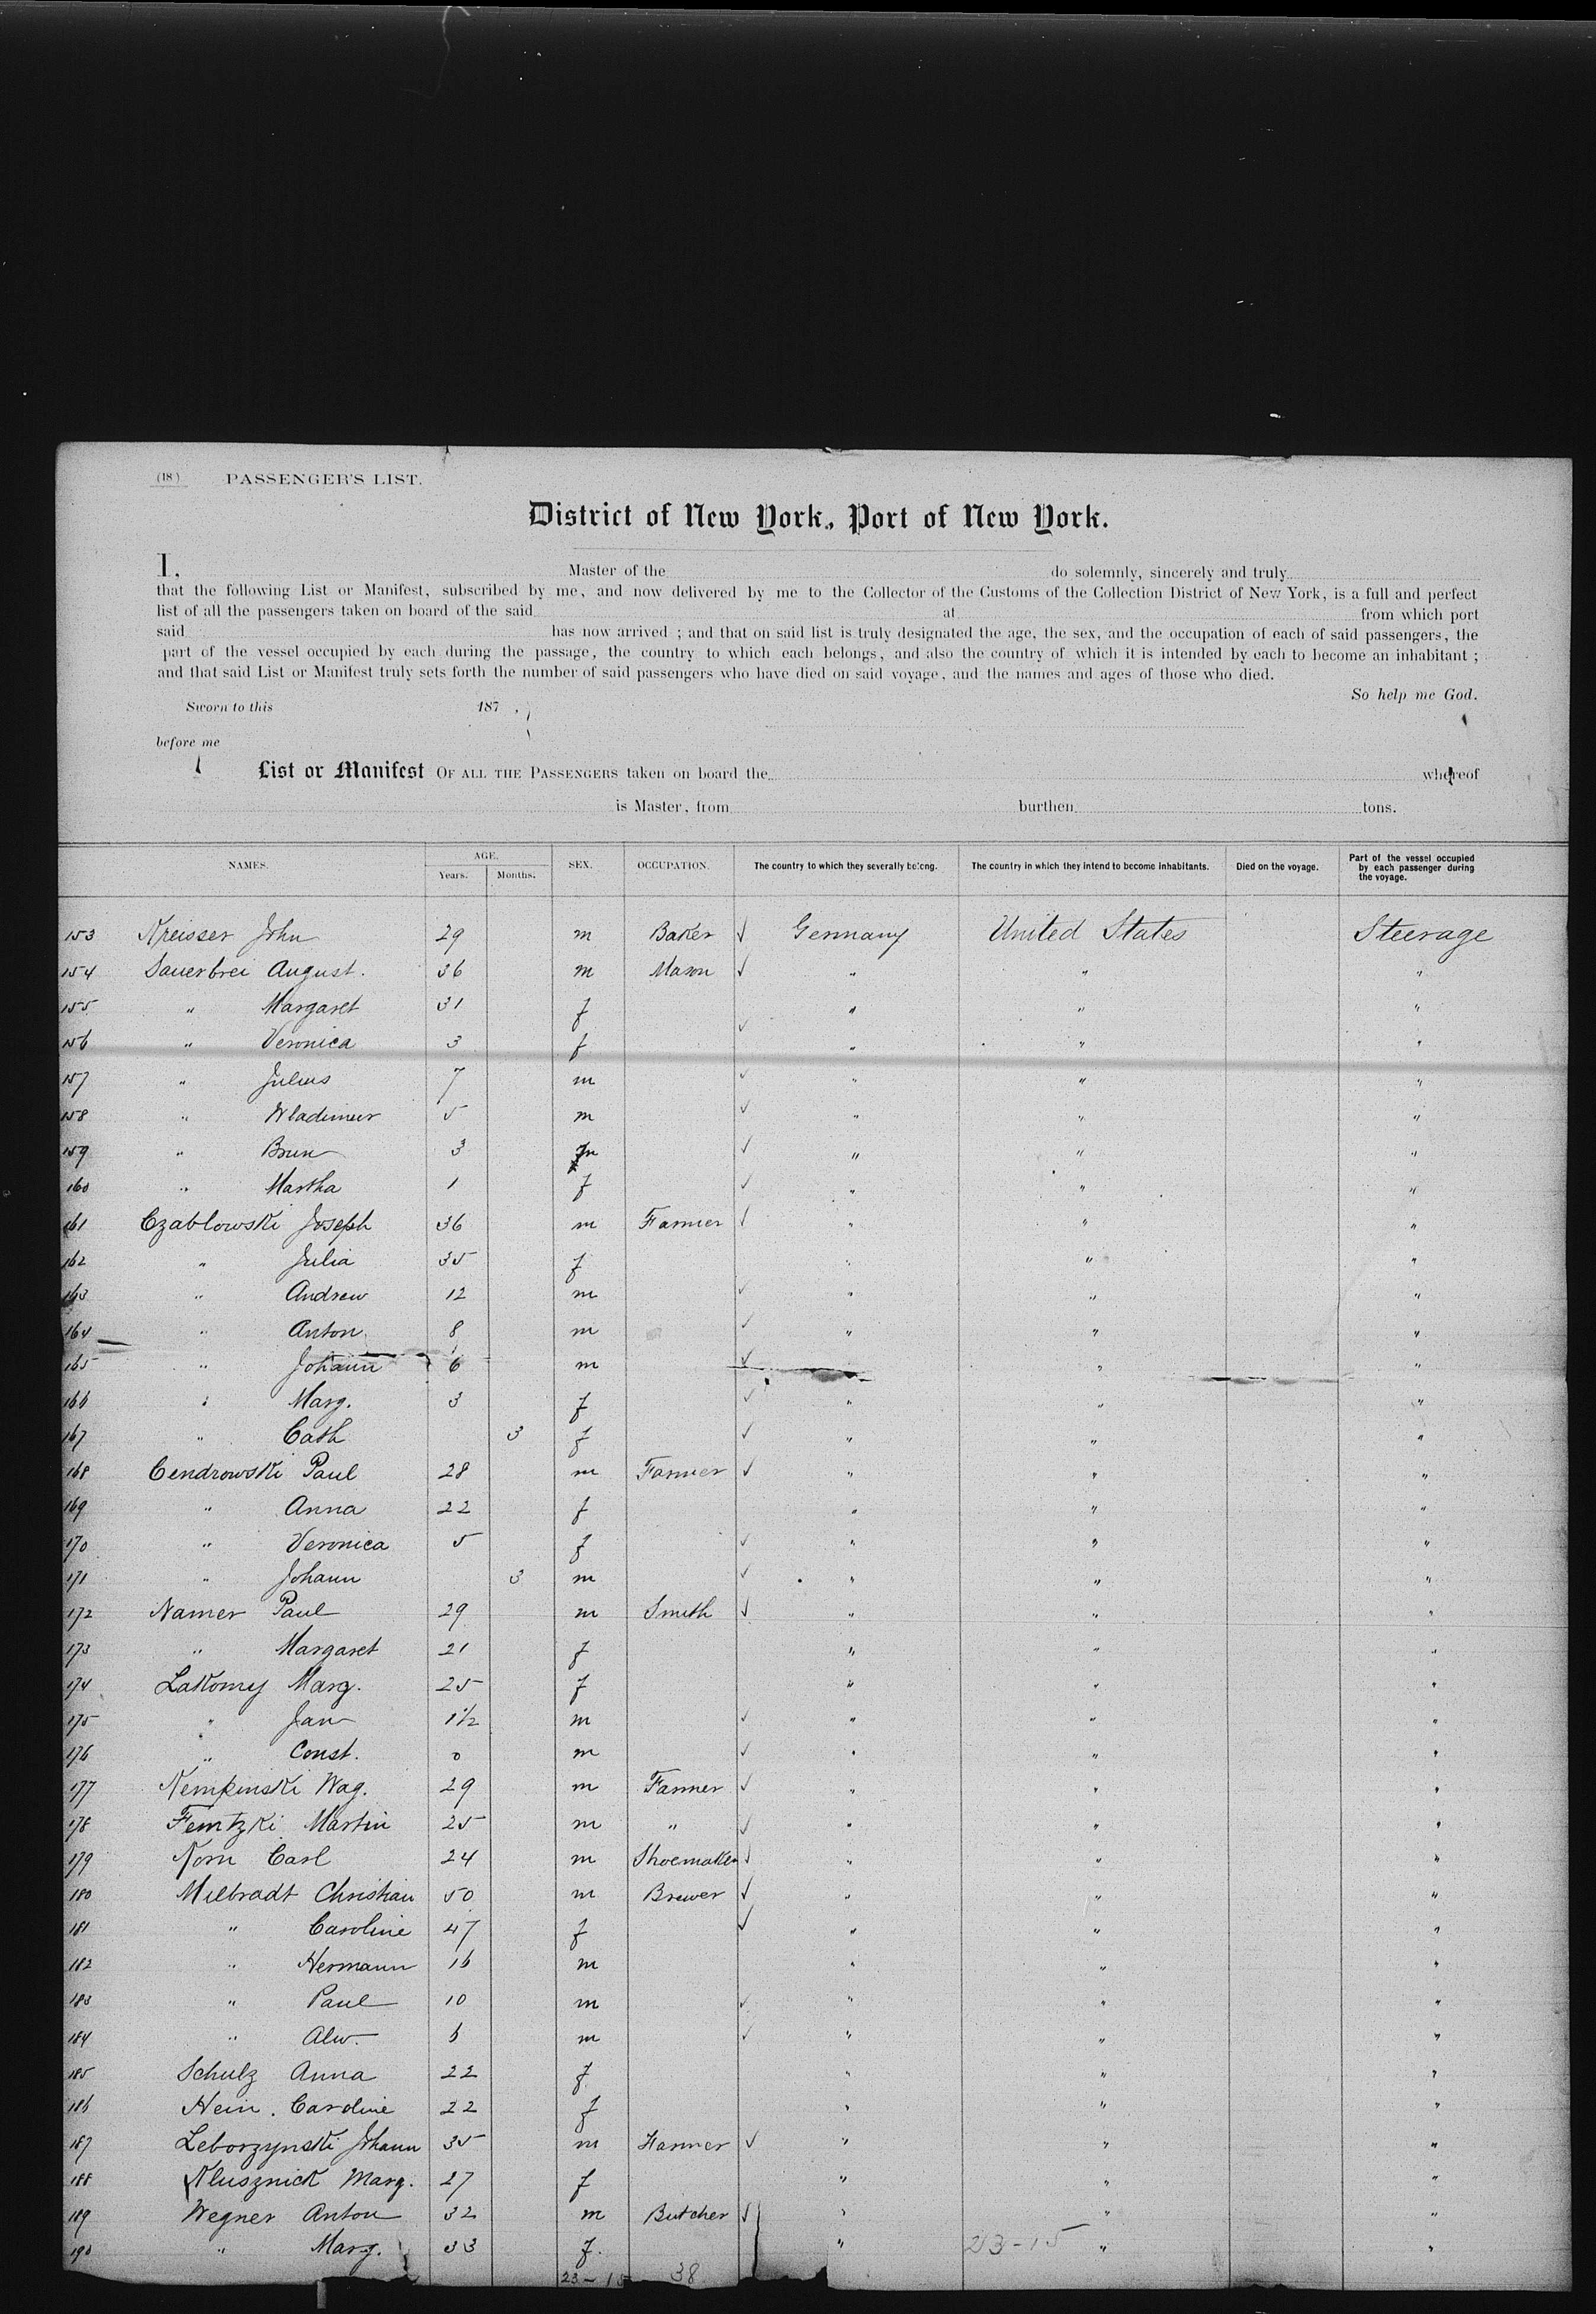 (18) PASSENGER'S LIST.
District of New York, Port of New York.
I, Master of the do solemnly, sincerely and truly
that the following List or Manifest, subscribed by me, and now delivered by me to the Collector of the Customs of the Collection District of New York, is a full and perfect
list of all the passengers taken on board of the said at from which port
said has now arrived ; and that on said list is truly designated the age, the sex, and the occupation of each of said passengers, the
part of the vessel occupied by each during the passage, the country to which each belongs, and also the country of which it is intended by each to become an inhabitant ;
and that said List or Manifest truly sets forth the number of said passengers who have died on said voyage, and the names and ages of those who died.
So help me God.
Sworn to this 187 ,
before me
List or Manifest OF ALL THE PASSENGERS taken on board the whereof
is Master, from burthen tons.
NAMES. AGE. Years. Months. SEX. OCCUPATION. The country to which they severally belong. The country in which they intend to become inhabitants. Died on the voyage. Part of the vessel occupied by each passenger during the voyage.
153 Kreisser John 29 m Baker ✓ Germany United States Steerage
154 Sauerbrei August. 36 m Mason ✓ " " "
155 " Margaret 31 f " " "
156 " Veronica 3 f ✓ " " "
157 " Julius 7 m ✓ " " "
158 " Wladimir 5 m ✓ " " "
159 " Brun 3 m ✓ " " "
160 " Martha 1 f ✓ " " "
161 Czablowski Joseph 36 m Farmer ✓ " " "
162 " Julia 35 f " " "
163 " Andrew 12 m ✓ " " "
164 " Anton 8 m ✓ " " "
165 " Johann 6 m ✓ " " "
166 " Marg. 3 f ✓ " " "
167 " Cath 3 f ✓ " " "
168 Cendrowski Paul 28 m Farmer ✓ " " "
169 " Anna 22 f " " "
170 " Veronica 5 f ✓ " " "
171 " Johann 3 m ✓ " " "
172 Namer Paul 29 m Smith ✓ " " "
173 " Margaret 21 f " " "
174 Lakomy Marg. 25 f " " "
175 " Jan 1½ m ✓ " " "
176 " Const. 0 m ✓ " " "
177 Kempinski Wag. 29 m Farmer ✓ " " "
178 Femtzki Martin 25 m " ✓ " " "
179 Korn Carl 24 m Shoemaker ✓ " " "
180 Milbradt Christian 50 m Brewer ✓ " " "
181 " Caroline 47 f ✓ " " "
182 " Hermann 16 m " " "
183 " Paul 10 m ✓ " " "
184 " Alw. 6 m ✓ " " "
185 Schulz Anna 22 f " " "
186 Hein. Caroline 22 f " " "
187 Leborzynski Johann 35 m Farmer ✓ " " "
188 Klusznick Marg. 27 f " " "
189 Wegner Anton 32 m Butcher ✓ " " "
190 " Marg. 33 f. " 23-15 " "
23-15 38